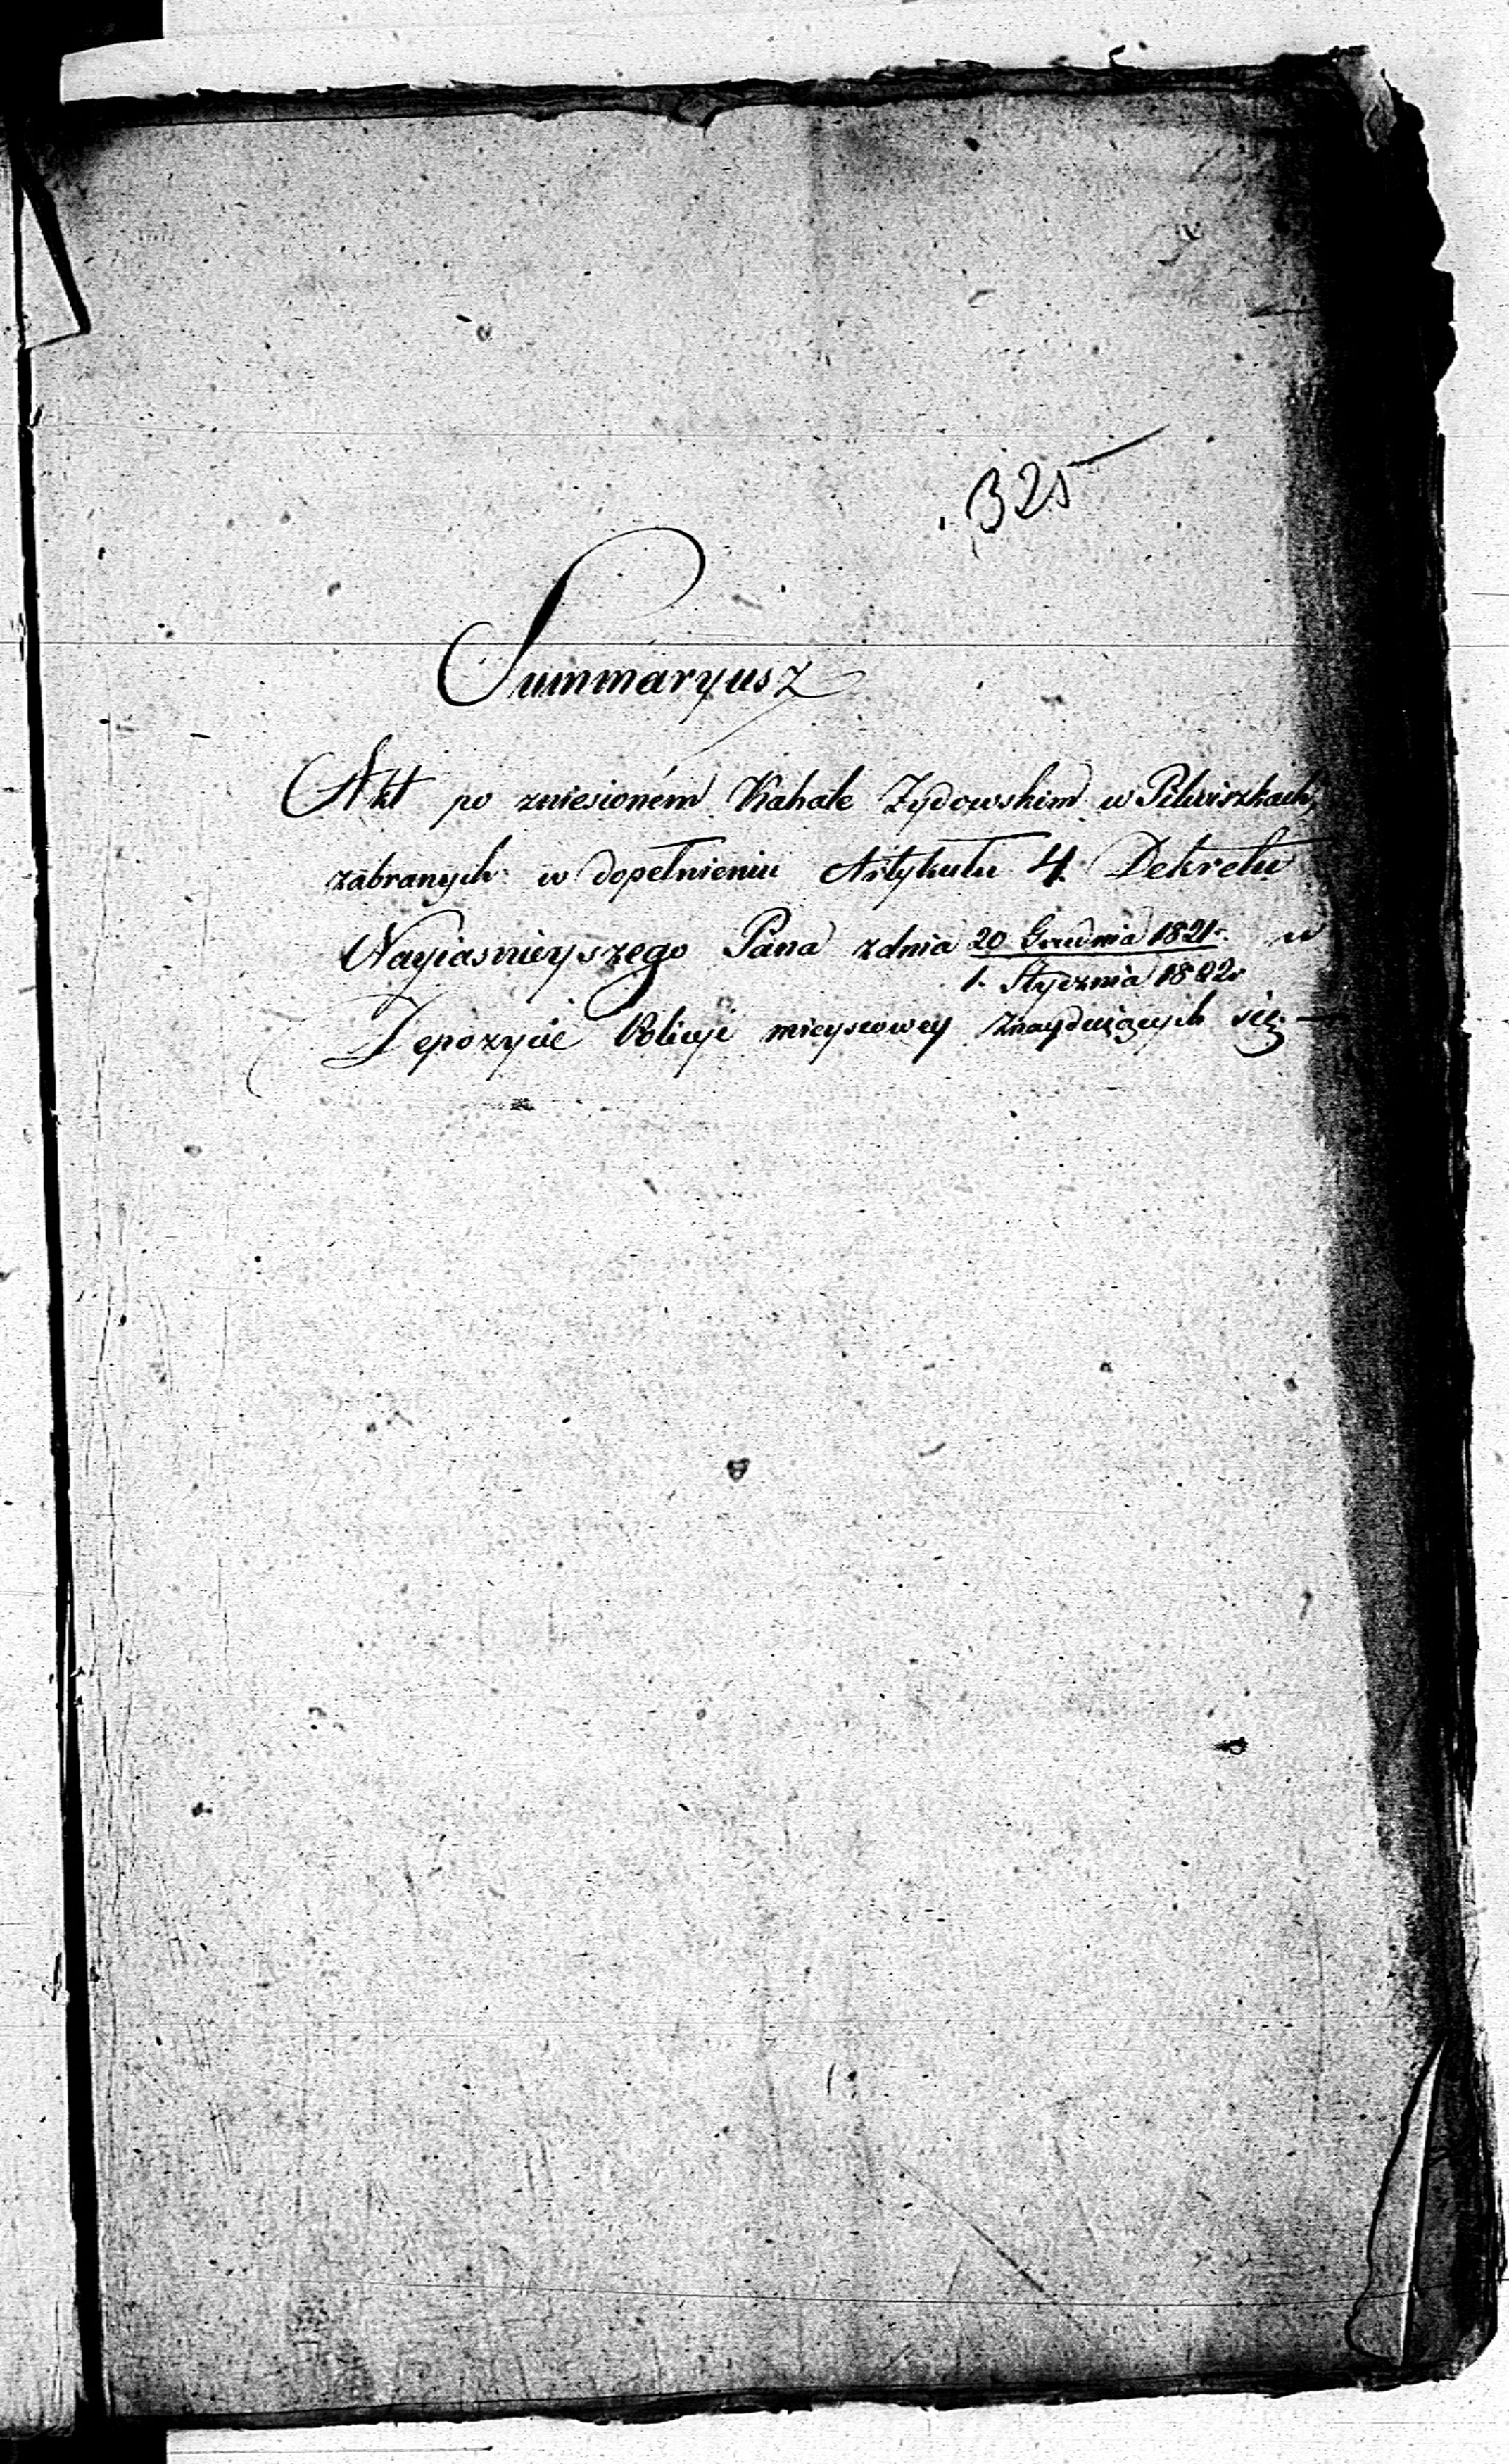 325
Summaryusz
Akt po zniesioném Kahale Żydowskim w Pilwiszkach,
zabranych w dopełnieniu Artykułu 4. Dekretu
Nayiaśnieyszego Pana z dnia 20 Grudnia 1821 r. w
1. Stycznia 1822
Depozycie Policyi mieyscowey znayduiących się.—